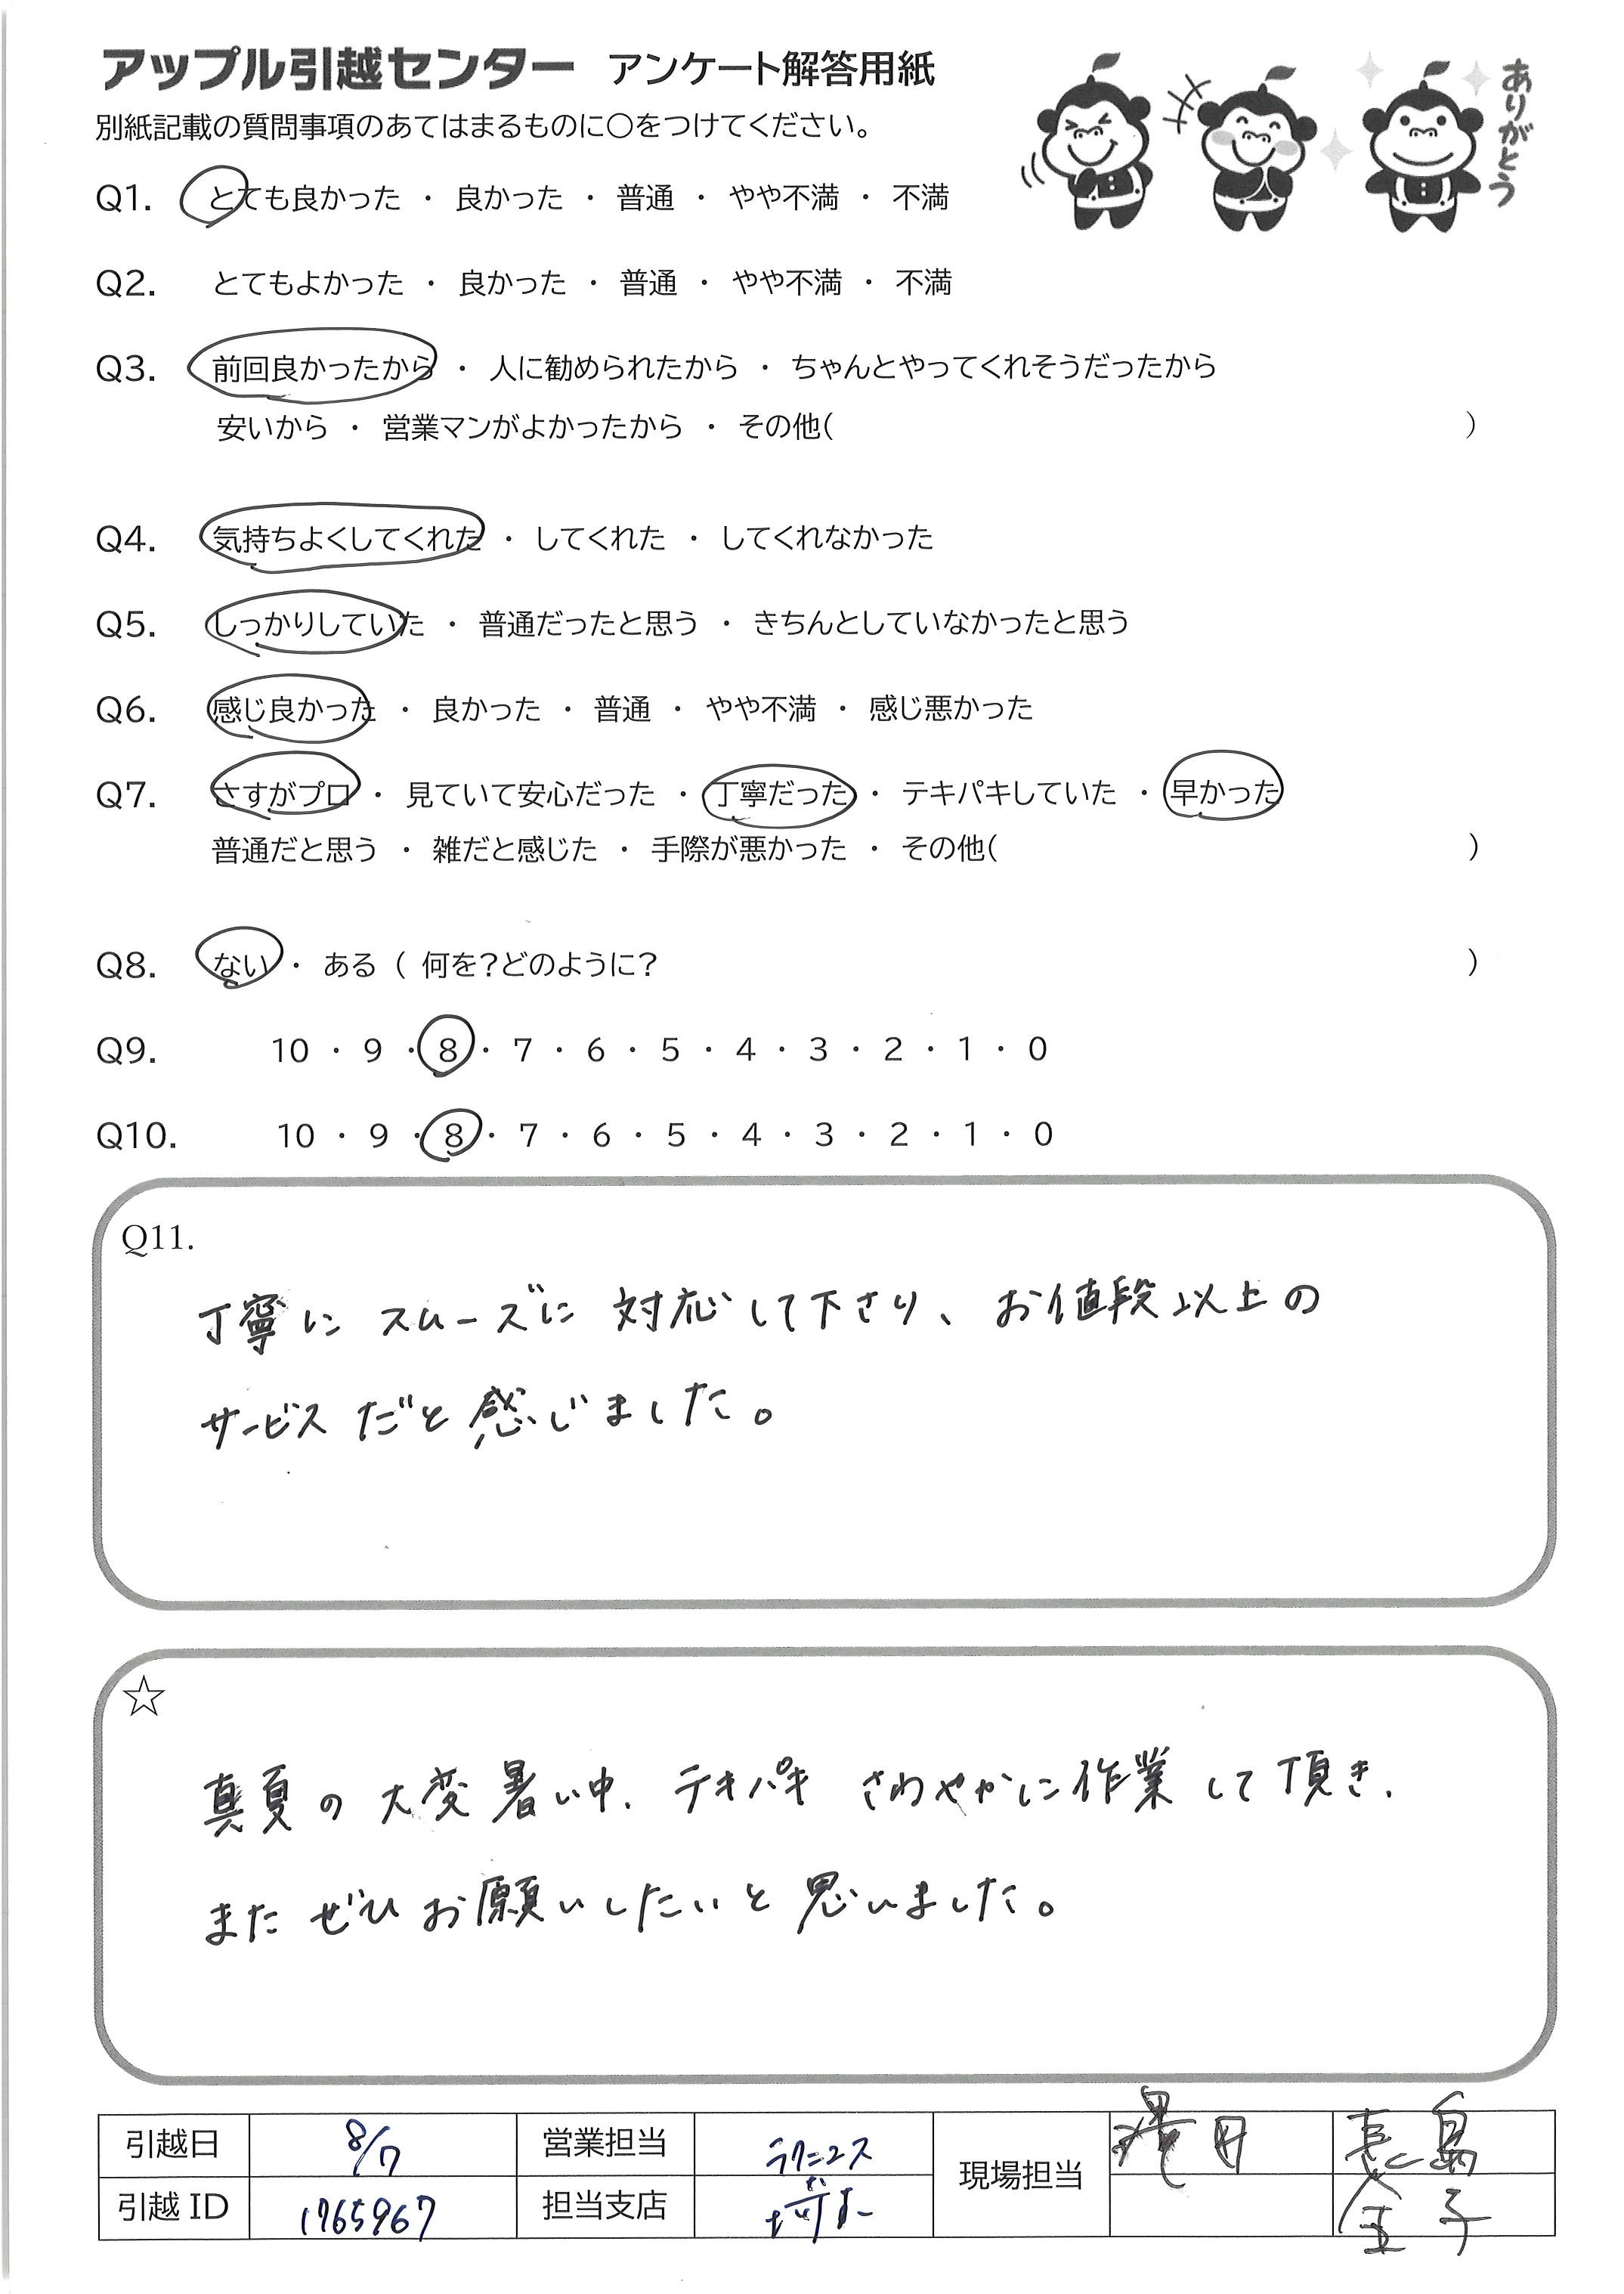 アップル引越センター アンケート解答用紙
別紙記載の質問事項のあてはまるものに○をつけてください。
ありがとう
Q1. とても良かった ・ 良かった ・ 普通 ・ やや不満 ・ 不満
Q2. とてもよかった ・ 良かった ・ 普通 ・ やや不満 ・ 不満
Q3. 前回良かったから ・ 人に勧められたから ・ ちゃんとやってくれそうだったから
安いから ・ 営業マンがよかったから ・ その他( )
Q4. 気持ちよくしてくれた ・ してくれた ・ してくれなかった
Q5. しっかりしていた ・ 普通だったと思う ・ きちんとしていなかったと思う
Q6. 感じ良かった ・ 良かった ・ 普通 ・ やや不満 ・ 感じ悪かった
Q7. さすがプロ ・ 見ていて安心だった ・ 丁寧だった ・ テキパキしていた ・ 早かった
普通だと思う ・ 雑だと感じた ・ 手際が悪かった ・ その他( )
Q8. ない ・ ある ( 何を？どのように？ )
Q9. 10 ・ 9 ・ 8 ・ 7 ・ 6 ・ 5 ・ 4 ・ 3 ・ 2 ・ 1 ・ 0
Q10. 10 ・ 9 ・ 8 ・ 7 ・ 6 ・ 5 ・ 4 ・ 3 ・ 2 ・ 1 ・ 0
Q11.
丁寧に スムーズに 対応して下さり、お値段以上の
サービスだと感じました。
☆
真夏の大変暑い中、テキパキ さわやかに作業して頂き、
また ぜひ お願いしたいと思いました。
引越日 8/7 営業担当 ラクニコス 現場担当 田 島
引越ID 1765967 担当支店 金子